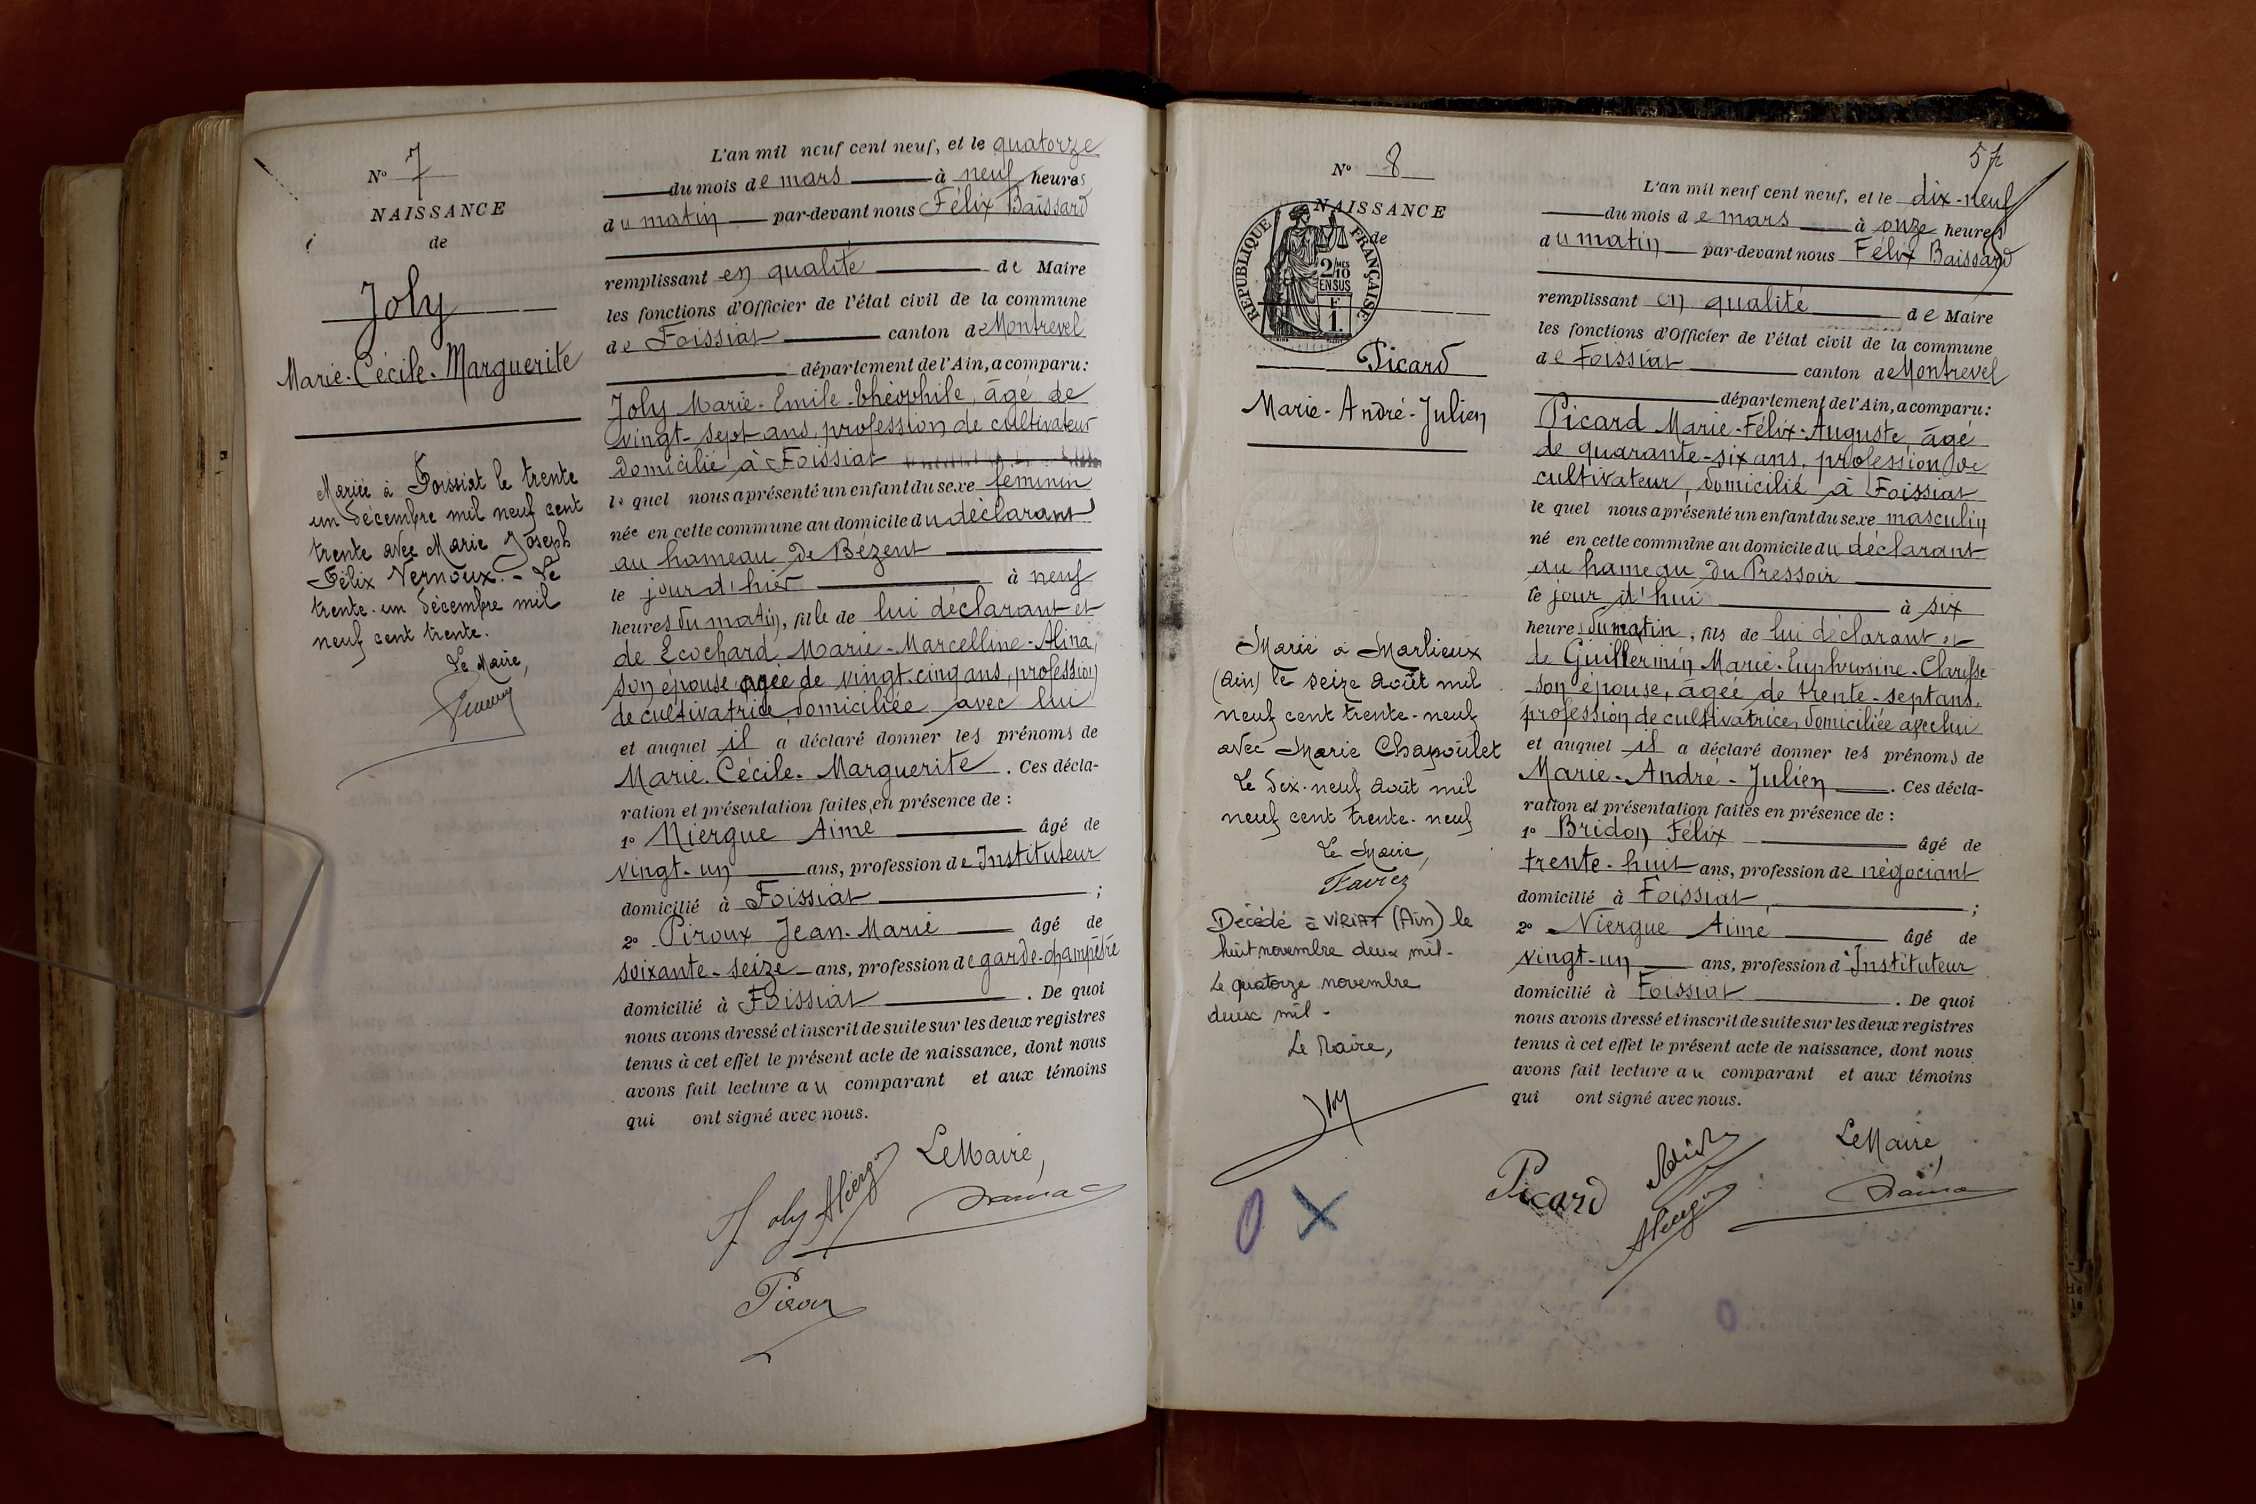 N° 7
NAISSANCE
de
Joly
Marie-Cécile-Marguerite
Mariée à Foissiat le trente
un décembre mil neuf cent
trente avec Marie Joseph
Félix Vernoux. - Le
trente-un décembre mil
neuf cent trente.
Le Maire,
L'an mil neuf cent neuf, et le quatorze
du mois de mars à neuf heures
du matin par-devant nous Félix Baissard
remplissant en qualité de Maire
les fonctions d'Officier de l'état civil de la commune
de Foissiat canton de Montrevel
département de l'Ain, a comparu:
Joly Marie-Emile-Théophile, âgé de
vingt-sept ans, profession de cultivateur
domicilié à Foissiat
le quel nous a présenté un enfant du sexe féminin
née en cette commune au domicile du déclarant
au hameau de Bézent
le jour d'hier à neuf
heures du matin, fille de lui déclarant et
de Ecochard Marie-Marcelline-Alina,
son épouse âgée de vingt-cinq ans, profession
de cultivatrice, domiciliée avec lui
et auquel il a déclaré donner les prénoms de
Marie-Cécile-Marguerite. Ces décla-
ration et présentation faites en présence de :
1° Niergue Aimé âgé de
vingt-un ans, profession de Instituteur
domicilié à Foissiat ;
2° Piroux Jean-Marie âgé de
soixante-seize ans, profession de garde-champêtre
domicilié à Foissiat . De quoi
nous avons dressé et inscrit de suite sur les deux registres
tenus à cet effet le présent acte de naissance, dont nous
avons fait lecture au comparant et aux témoins
qui ont signé avec nous.
Le Maire,
Joly
Piroux
57
N° 8
NAISSANCE
de
REPUBLIQUE FRANÇAISE
2/10 MES
EN SUS
F
1.
Picard
Marie-André-Julien
Marié à Marlieux
(Ain) le seize août mil
neuf cent trente-neuf
avec Marie Chapoulet
Le dix-neuf août mil
neuf cent trente-neuf
Le Maire,
Décédé à VIRIAT (Ain) le
huit novembre deux mil.
Le quatorze novembre
deux mil.
Le Maire,
O X
L'an mil neuf cent neuf, et le dix-neuf
du mois de mars à onze heures
du matin par-devant nous Félix Baissard
remplissant en qualité de Maire
les fonctions d'Officier de l'état civil de la commune
de Foissiat canton de Montrevel
département de l'Ain, a comparu:
Picard Marie-Félix-Auguste, âgé
de quarante-six ans, profession de
cultivateur, domicilié à Foissiat
le quel nous a présenté un enfant du sexe masculin
né en cette commune au domicile du déclarant
au hameau du Pressoir
le jour d'hui à six
heures du matin, fils de lui déclarant et
de Guillermin Marie-Euphrosine-Clarysse
son épouse, âgée de trente-sept ans,
profession de cultivatrice, domiciliée avec lui
et auquel il a déclaré donner les prénoms de
Marie-André-Julien . Ces décla-
ration et présentation faites en présence de :
1° Bridon Félix âgé de
trente-huit ans, profession de négociant
domicilié à Foissiat ;
2° Niergue Aimé âgé de
vingt-un ans, profession d'Instituteur
domicilié à Foissiat . De quoi
nous avons dressé et inscrit de suite sur les deux registres
tenus à cet effet le présent acte de naissance, dont nous
avons fait lecture au comparant et aux témoins
qui ont signé avec nous.
Le Maire,
Picard